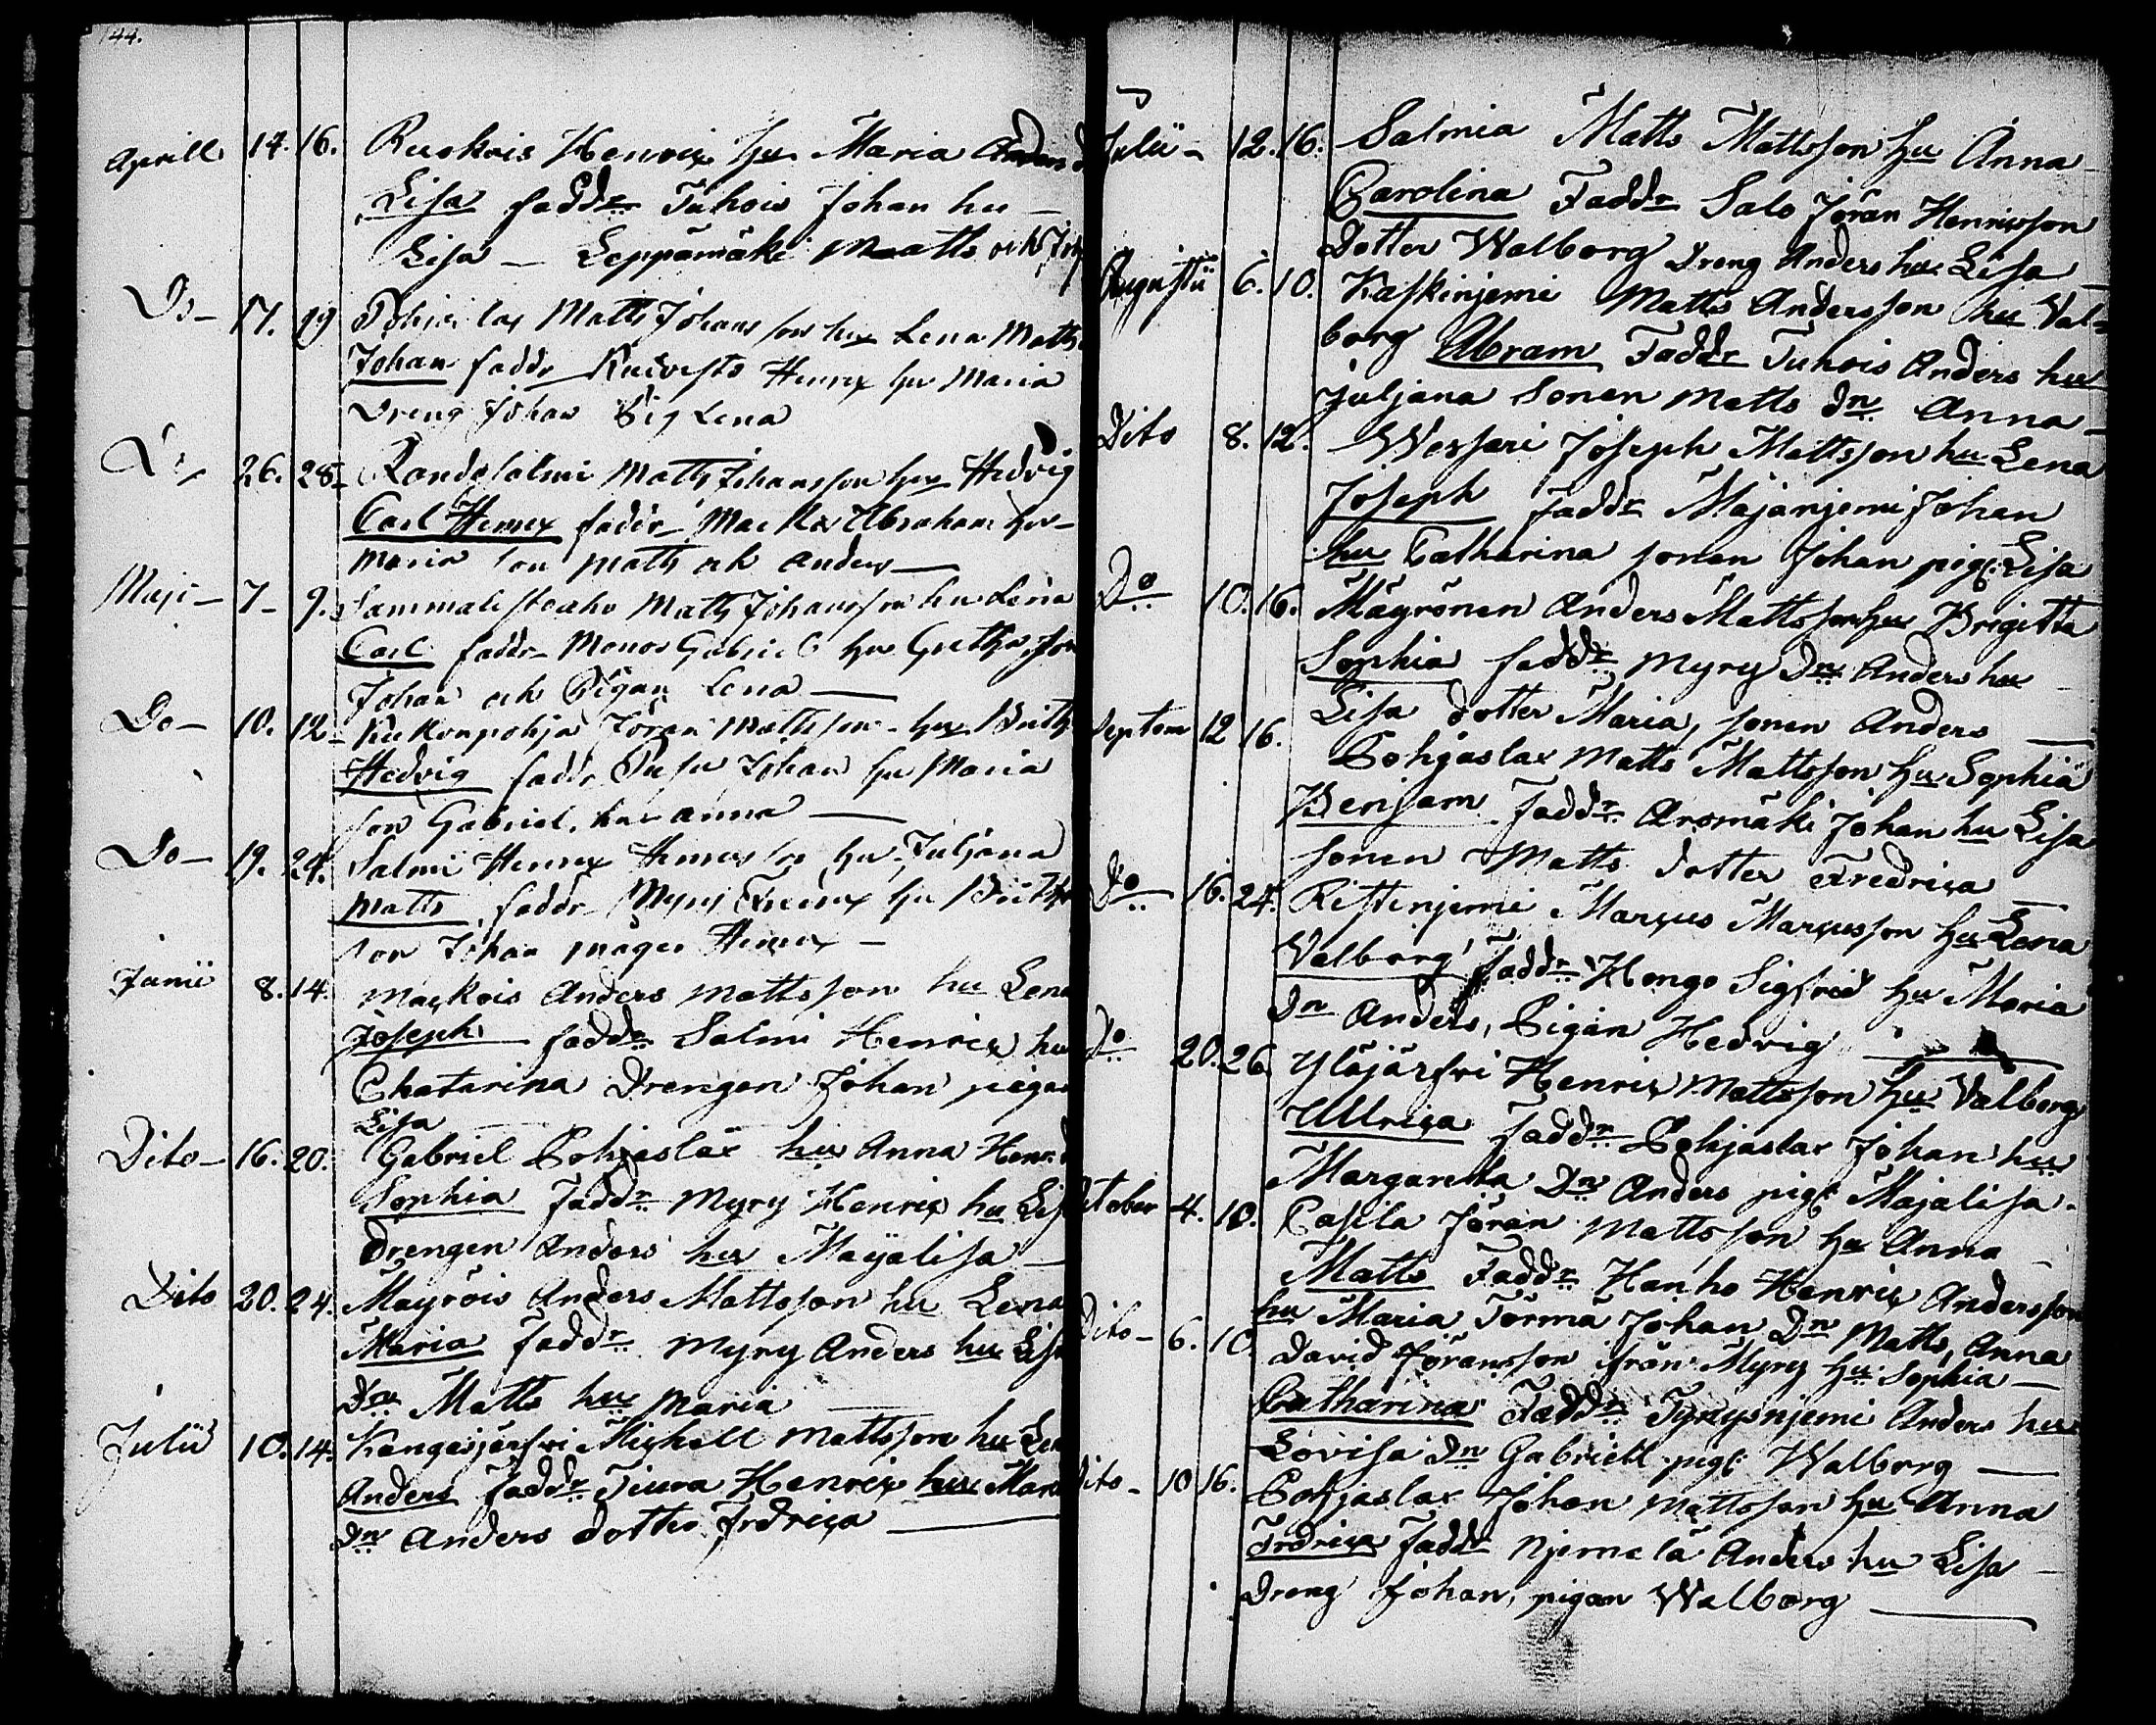 144.
Aprill 14. 16. Ruokois Henrix hu Maria
Lisa faddr Tuhois Johan hu
Lisa Leppämäki Matts och
Do 17. 19 Pohjaslax Matts Johansson hu Lena Matts
Johan faddr Henrix hu Maria
Dreng Johan Pig Lena
Do 26. 28 Randosalmi Matts Johansson hu Hedvig
Carl Henrix faddr Abraham hu
Maria son Matts och Anders
Maji 7 9. Matts Johansson hu Lena
Carl faddr Monos Gabriel hu Gretha, son
Johan och Pigan Lena
Do 10. 12 Kuckonpohja Jöran Mattsson hu Brith
Hedvig faddr Johan hu Maria
son Gabriel, hu anna
Do 19. 24. Salmi Henrix hu Juljana
Matts faddr Myry hu Brith
son Johan måger Henrix
Junii 8. 14. Maxkois Anders Mattsson hu Lena
Joseph faddr Salmi Henrix hu
Chatarina Drengen Johan pigan
Lisa
Dito 16. 20. Gabriel Pohjaslax hu Anna Henr. d
Sophia Faddr Myry Henrix hu Lis
Drengen Anders hu Majalisa
Dito 20. 24. Mäyröis Anders Mattsson hu Lena
Maria Faddr Myry Anders hu Lisa
Dn Matts hu Maria
Julii 10. 14. Kangasjärfvi Mixhell Mattsson hu Len
Anders Faddr Tiura Henrix hu Mar
Dn Anders dotter Fredrica
Julii 12. 16. Salmia Matts Mattsson hu Anna
Carolina Faddr Salo Jöran Henricsson
Dotter Walborg Dreng Anders hu Lisa
Augustii 6. 10. Kaskinjemi Matts Andersson hu Val=
borg Abram Faddr Tuhois Anders hu
Juljana Sonen Matts dn Anna
Dito 8. 12. Wessari Joseph Mattsson hu Lena
Joseph Faddr Majanjemi Johan
hu Catharina sonen Johan pig: Lisa
Do 10. 16. Mäyrönen Anders Mattsson hu Brigitta
Sophia faddr Myry Dn Anders hu
Lisa dotter Maria, sonen Anders
Septem 12 16. Pohjaslax Matts Mattsson hu Sophia
Benjam Faddr Aromäki Johan hu Lisa
sonen Matts dotter Fredrica
Do 16. 24. Ristinjemi Marcus Marcusson hu Lena
Valborg Faddr Hongo Sigfrid hu Maria
Dn Anders, Pigan Hedvig
Do 20. 26. Yläjärfvi Henrix Mattsson hu Valborg
Ullrica Faddr Pohjaslax Johan hu
Margaretta Dn Anders pig: Majalisa.
October 4. 10. Casila Jöran Mattsson hu Anna
Matts Faddr Hanho Henrix Andersson
hu Maria Törmä Johan Dn Matts, Anna
Dito 6. 10. David Jöransson från Myry hu Sophia
Catharina Faddr Tynysnjemi Anders hu
Lovisa dn Gabriell pig: Walborg
Dito 10 16. Pohjaslax Johan Mattsson hu Anna
Fredrica Faddr Njemelä Anders hu Lisa
Dreng Johan, pigan Walborg